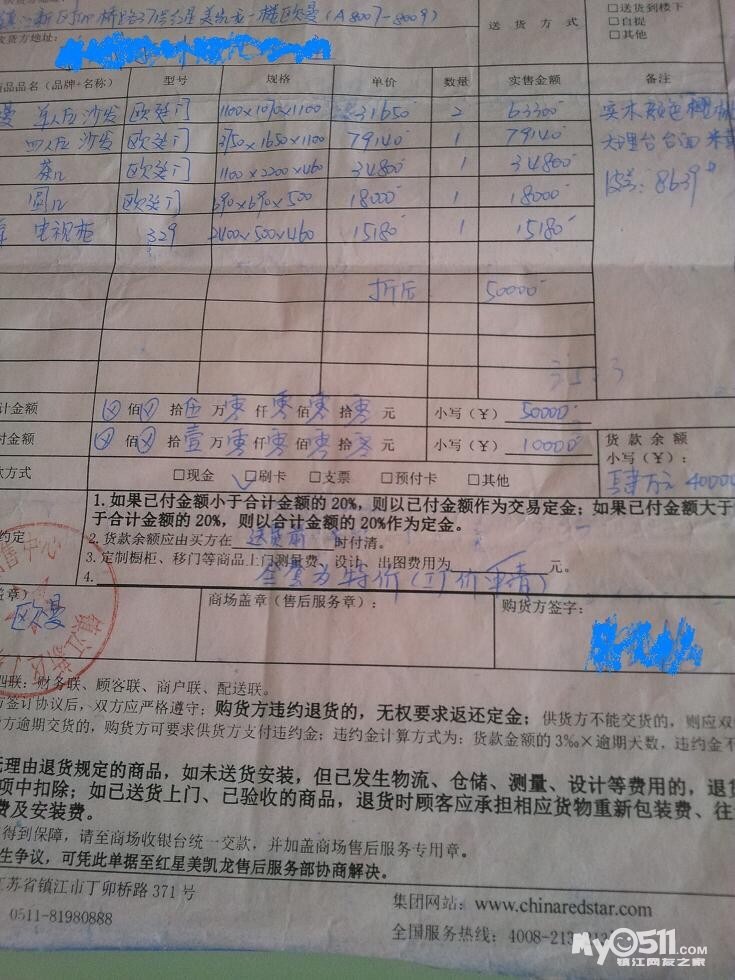 桥路37 红星美凯龙一楼欧曼(A8007-8009)
送货方式
□送货到楼下
□自提
□其他
收货方地址:
商品品名(品牌+名称) 型号 规格 单价 数量 实售金额 备注
曼 单人位沙发 1100×1070×1100 31650 2 63300 实木颜色
四人位沙发 3750×1650×1100 79140 1 79140 大理石台面
茶几 1100×2200×460 34800 1 34800 8639#
圆几 690×690×500 18000 1 18000
电视柜 329 2400×500×460 15180 1 15180
折后 50000
计金额 佰 拾伍万零仟零佰零拾零元 小写(¥) 50000
付金额 佰 拾壹万零仟零佰零拾零元 小写(¥) 10000 货款余额
小写(¥):
肆万元 40000
款方式 □现金 □刷卡 □支票 □预付卡 □其他
1.如果已付金额小于合计金额的20%,则以已付金额作为交易定金;如果已付金额大于
于合计金额的20%,则以合计金额的20%作为定金。
约定
2.货款余额应由买方在 送货前 时付清。
3.定制橱柜、移门等商品上门测量费、设计、出图费用为 元。
4. 全套为特价
售中心
盖章) 商场盖章(售后服务章): 购货方签字:
欧曼
四联:财务联、顾客联、商户联、配送联。
方签订协议后,双方应严格遵守:购货方违约退货的,无权要求返还定金;供货方不能交货的,则应双
方逾期交货的,购货方可要求供货方支付违约金;违约金计算方式为:货款金额的3‰×逾期天数,违约金不
无理由退货规定的商品,如未送货安装,但已发生物流、仓储、测量、设计等费用的,退货
项中扣除;如已送货上门、已验收的商品,退货时顾客应承担相应货物重新包装费、往
费及安装费。
得到保障,请至商场收银台统一交款,并加盖商场售后服务专用章。
生争议,可凭此单据至红星美凯龙售后服务部协商解决。
江苏省镇江市丁卯桥路371号
集团网站:www.chinaredstar.com
0511-81980888
全国服务热线:4008-213
My0511.com
镇江网友之家